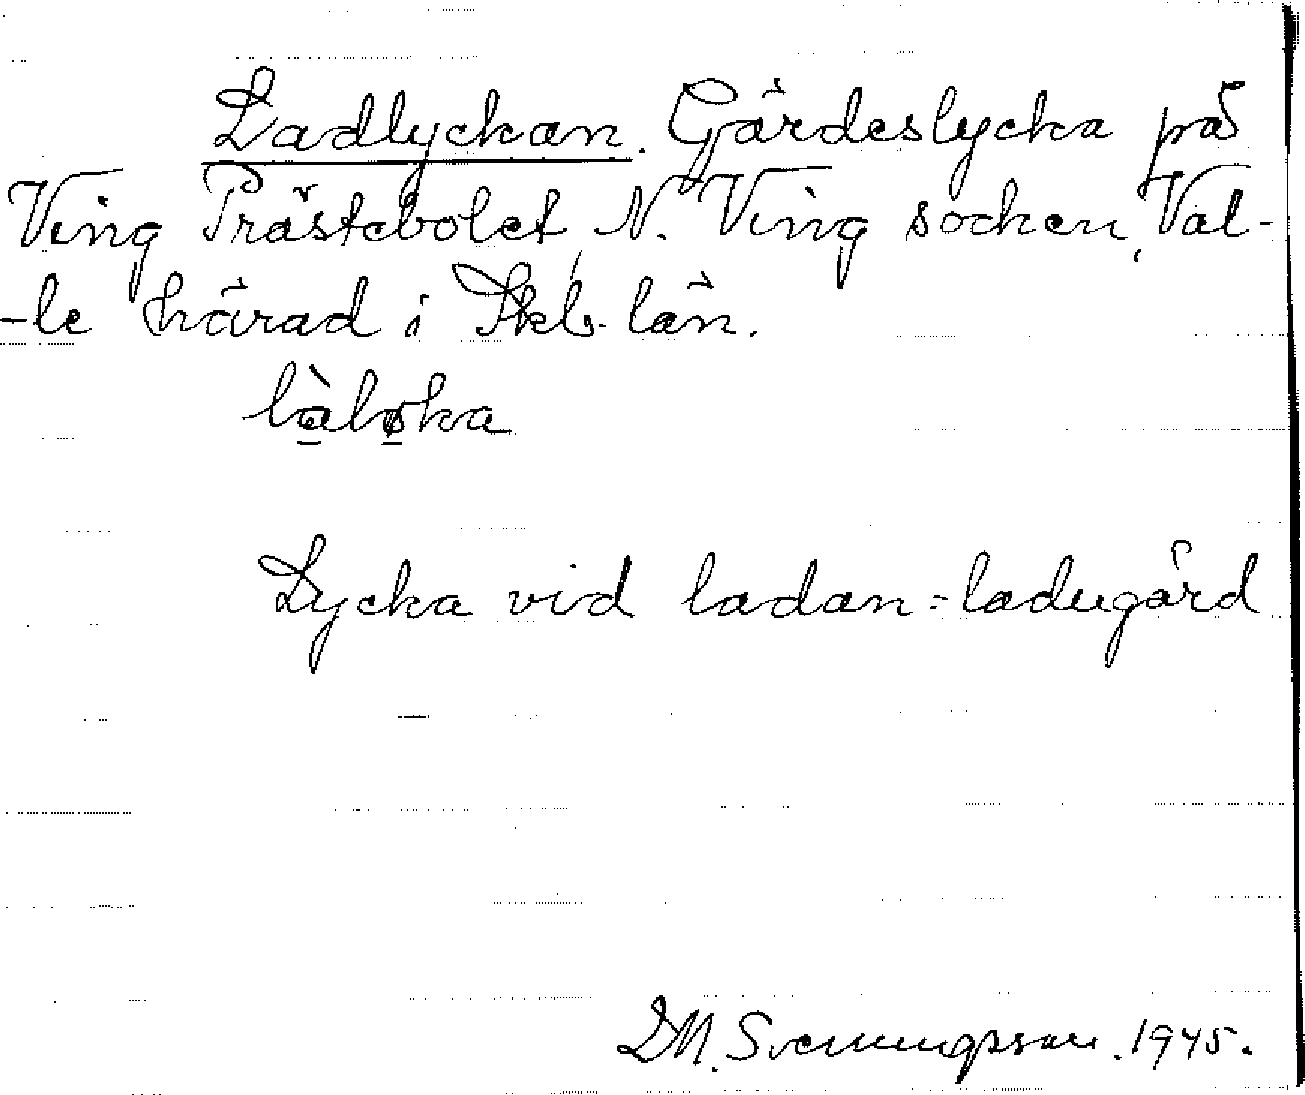 Ladlyckan. Gärdeslycka på
Ving Prästebolet, N. Ving socken, Val-
-le härad i Skb. län.
làløka
Lycka vid ladan = ladugård
D.M. Svenungsson. 1945.